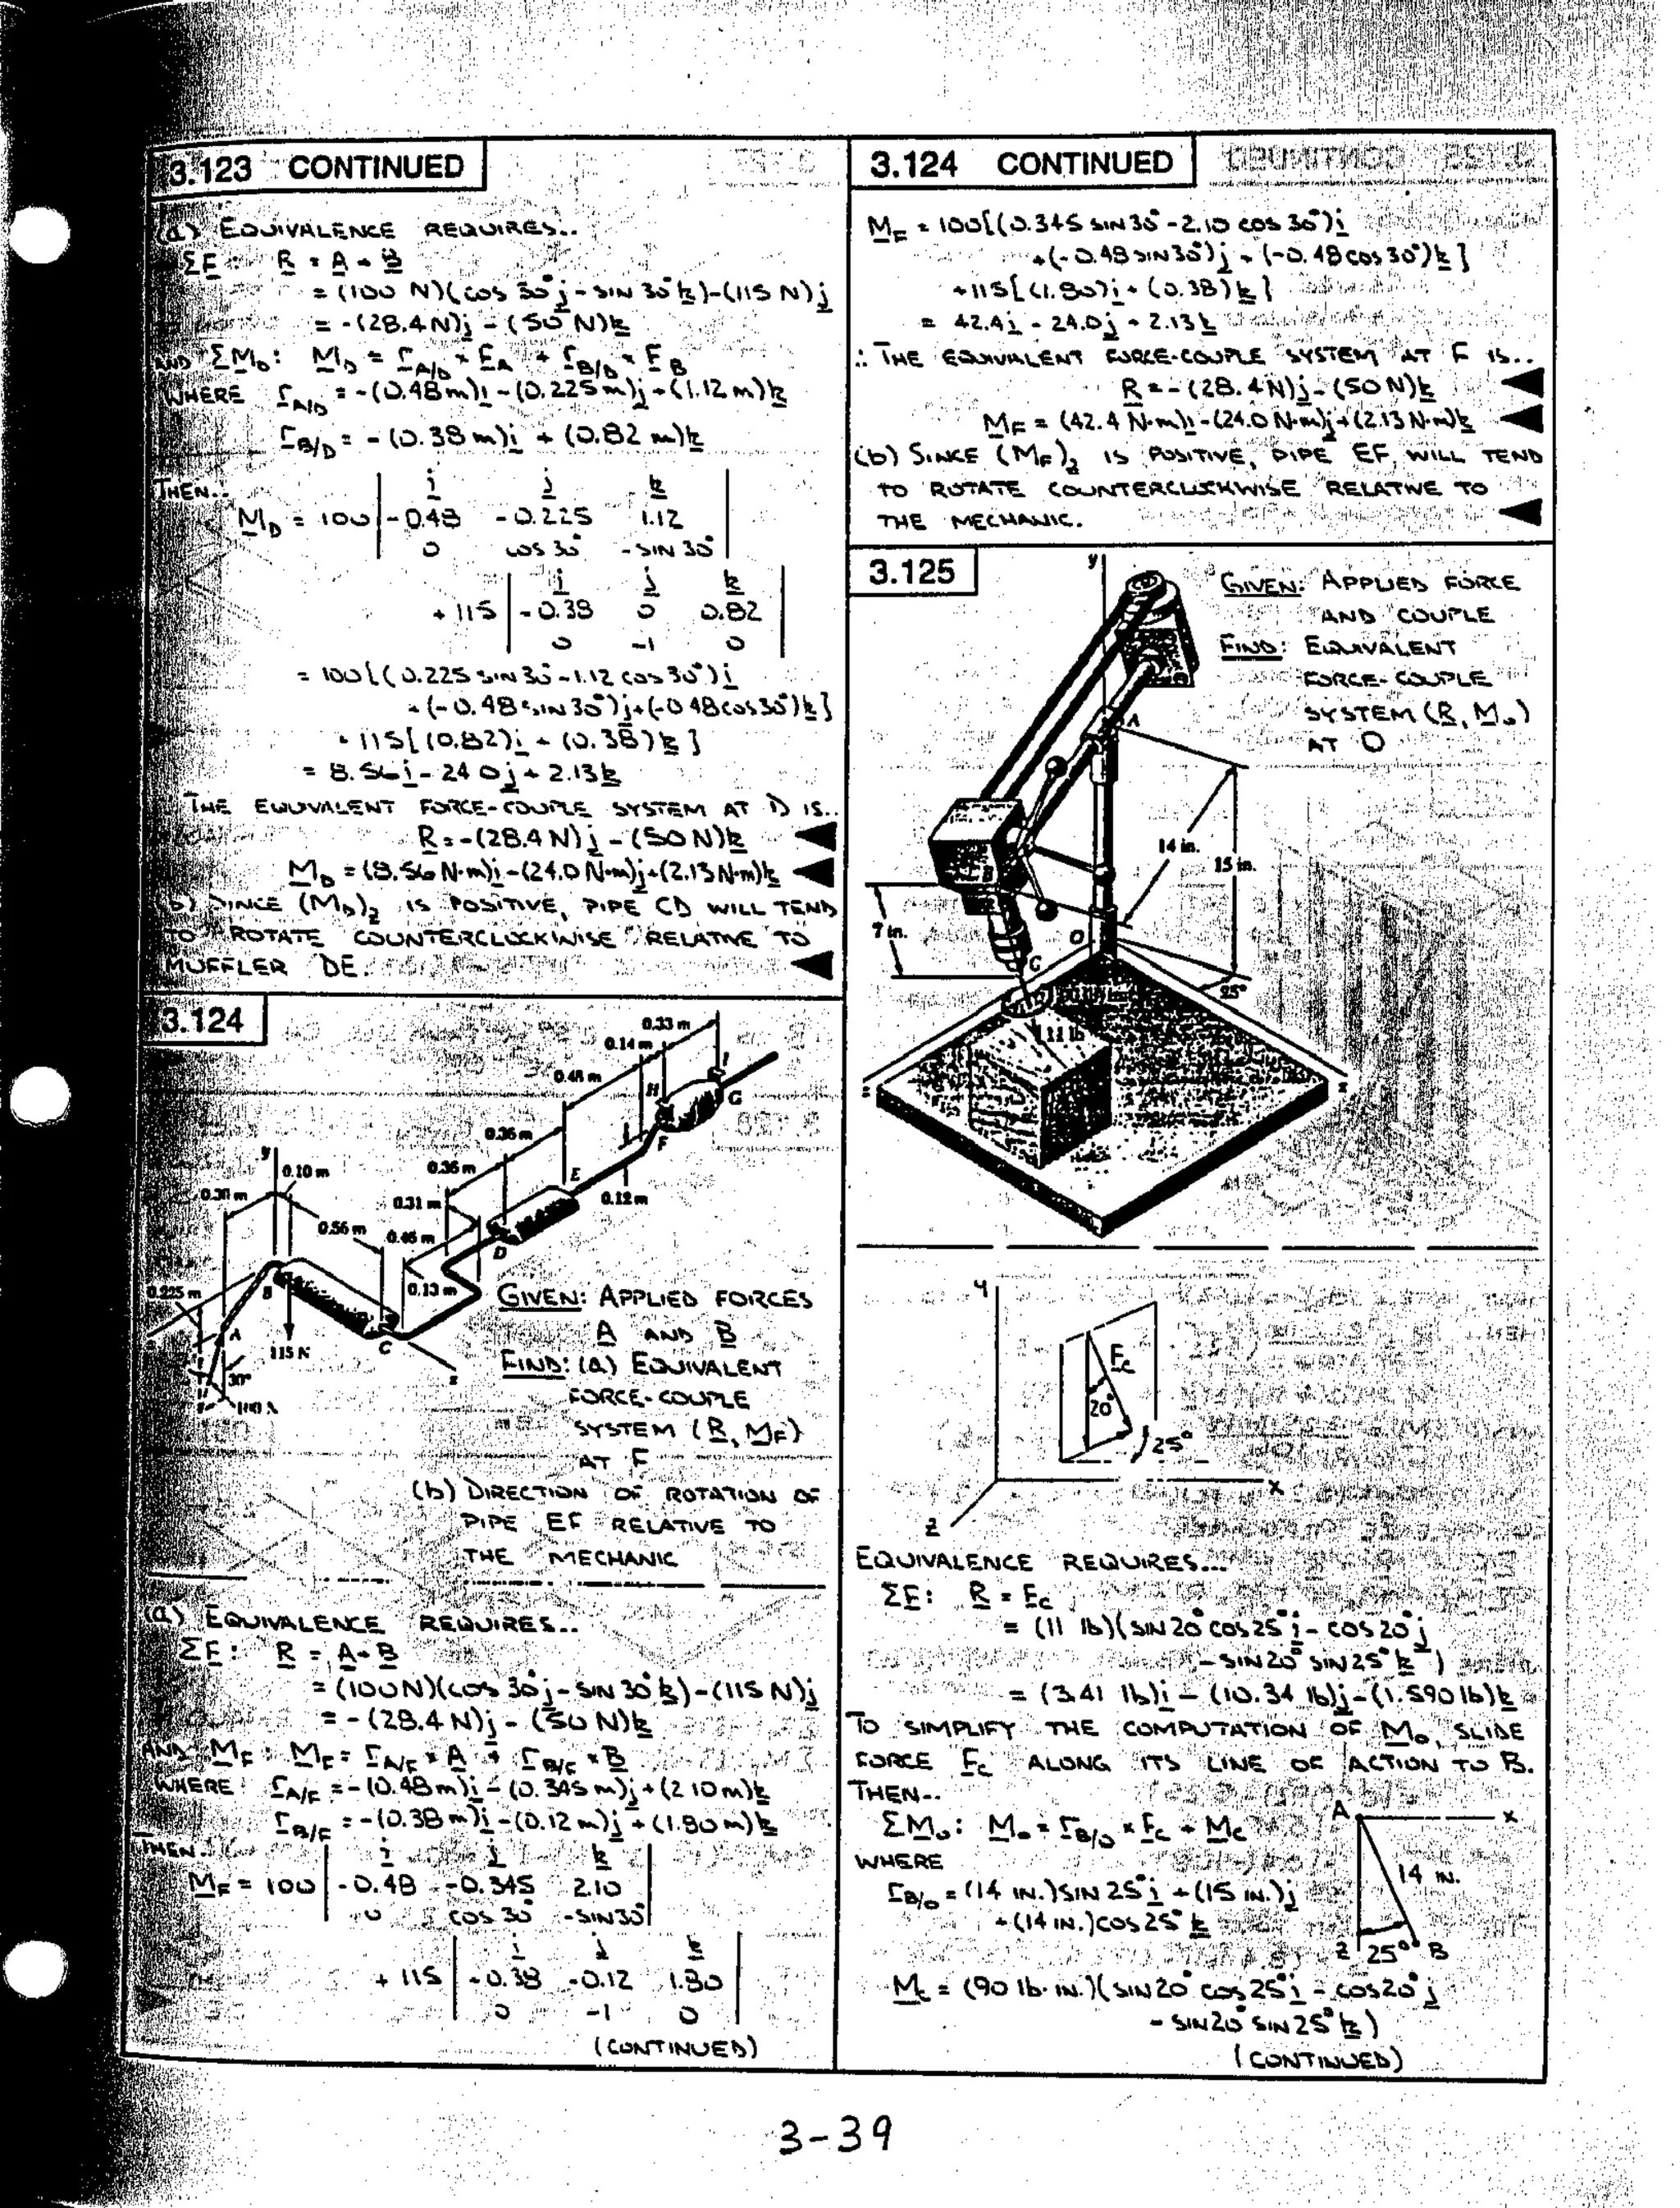 3.123 CONTINUED
(a) EQUIVALENCE REQUIRES..
ΣF: R = A + B
= (100 N)(cos 30° j - sin 30° k) - (115 N) j
= -(28.4 N) j - (50 N) k
AND ΣM_D: M_D = r_A/D × F_A + r_B/D × F_B
WHERE r_A/D = -(0.48 m) i - (0.225 m) j + (1.12 m) k
r_B/D = -(0.38 m) i + (0.82 m) k
THEN..
i j k
M_D = 100 | -0.48 -0.225 1.12 |
0 cos 30° -sin 30°
i j k
+ 115 | -0.38 0 0.82 |
0 -1 0
= 100[(0.225 sin 30° - 1.12 cos 30°) i
+ (-0.48 sin 30°) j + (-0.48 cos 30°) k]
+ 115[(0.82) i + (0.38) k]
= 8.56 i - 24.0 j + 2.13 k
THE EQUIVALENT FORCE-COUPLE SYSTEM AT D IS..
R = -(28.4 N) j - (50 N) k
M_D = (8.56 N·m) i - (24.0 N·m) j + (2.13 N·m) k
(b) SINCE (M_D)z IS POSITIVE, PIPE CD WILL TEND
TO ROTATE COUNTERCLOCKWISE RELATIVE TO
MUFFLER DE.
3.124
0.33 m
0.14 m
0.48 m
H
I
G
0.36 m
F
y
0.10 m
0.36 m
E
0.12 m
0.31 m
0.56 m
0.46 m
D
0.225 m
B
0.13 m
A
115 N
C
x
30°
100 N
GIVEN: APPLIED FORCES
A AND B
FIND: (a) EQUIVALENT
FORCE-COUPLE
SYSTEM (R, M_F)
AT F
(b) DIRECTION OF ROTATION OF
PIPE EF RELATIVE TO
THE MECHANIC
(a) EQUIVALENCE REQUIRES..
ΣF: R = A + B
= (100 N)(cos 30° j - sin 30° k) - (115 N) j
= -(28.4 N) j - (50 N) k
AND M_F: M_F = r_A/F × A + r_B/F × B
WHERE r_A/F = -(0.48 m) i - (0.345 m) j + (2.10 m) k
r_B/F = -(0.38 m) i - (0.12 m) j + (1.80 m) k
THEN..
i j k
M_F = 100 | -0.48 -0.345 2.10 |
0 cos 30° -sin 30°
i j k
+ 115 | -0.38 -0.12 1.80 |
0 -1 0
(CONTINUED)
3.124 CONTINUED
M_F = 100[(0.345 sin 30° - 2.10 cos 30°) i
+ (-0.48 sin 30°) j + (-0.48 cos 30°) k]
+ 115[(1.80) i + (0.38) k]
= 42.4 i - 24.0 j + 2.13 k
∴ THE EQUIVALENT FORCE-COUPLE SYSTEM AT F IS..
R = -(28.4 N) j - (50 N) k
M_F = (42.4 N·m) i - (24.0 N·m) j + (2.13 N·m) k
(b) SINCE (M_F)z IS POSITIVE, PIPE EF WILL TEND
TO ROTATE COUNTERCLOCKWISE RELATIVE TO
THE MECHANIC.
3.125
y
GIVEN: APPLIED FORCE
AND COUPLE
FIND: EQUIVALENT
FORCE-COUPLE
SYSTEM (R, M_O)
AT O
A
14 in.
15 in.
B
7 in.
O
C
25°
11 lb
y
F_C
20°
25°
x
z
EQUIVALENCE REQUIRES...
ΣF: R = F_C
= (11 lb)(sin 20° cos 25° i - cos 20° j
- sin 20° sin 25° k)
= (3.41 lb) i - (10.34 lb) j - (1.590 lb) k
TO SIMPLIFY THE COMPUTATION OF M_O, SLIDE
FORCE F_C ALONG ITS LINE OF ACTION TO B.
THEN..
ΣM_O: M_O = r_B/O × F_C + M_C
WHERE
r_B/O = (14 IN.) SIN 25° i + (15 IN.) j
+ (14 IN.) COS 25° k
A x
14 IN.
z 25° B
M_C = (90 lb·IN.)(sin 20° cos 25° i - cos 20° j
- sin 20° sin 25° k)
(CONTINUED)
3-39